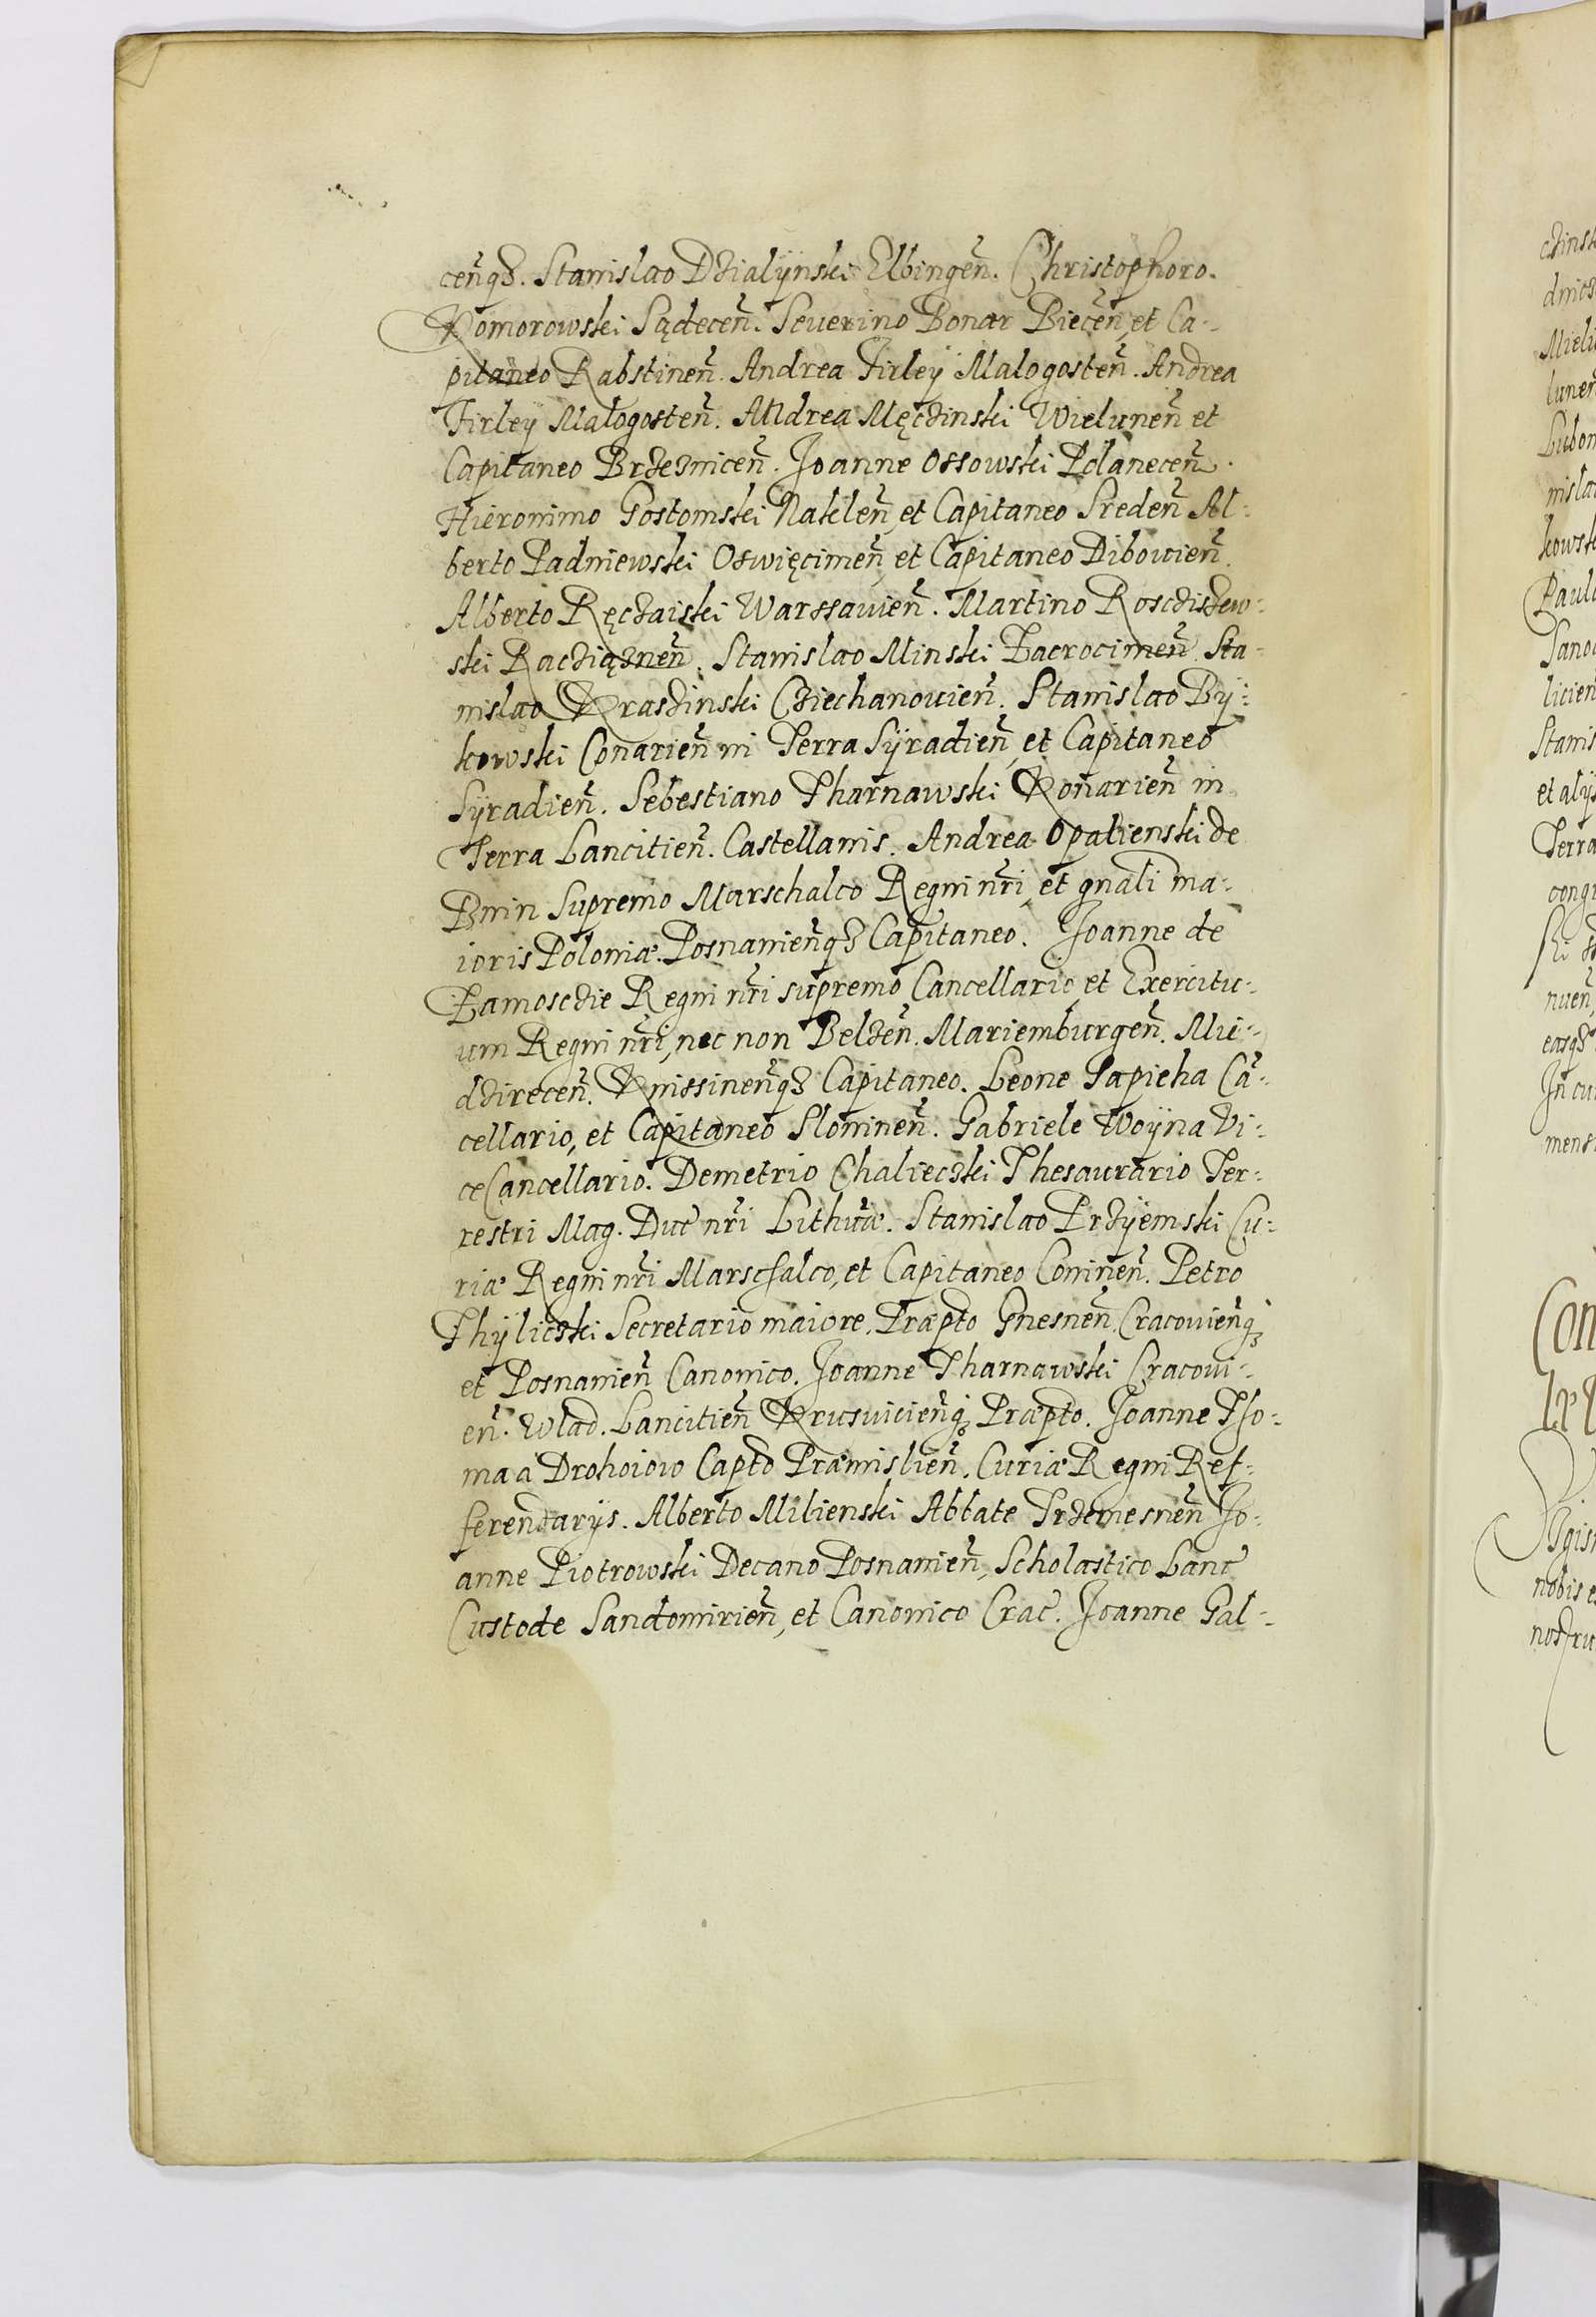 cen̄qȝ. Stanislao Dzialÿnski Elbingen̄. Christophoro.
Komorowski Sądecen̄. Seuerino Bonar Biecen̄, et Ca-
pitaneo Rabstinen̄. Andrea Firleÿ Malogosten̄. Andrea
Firleÿ Malogosten̄. Andrea Męczinski Wielunen̄ et
Capitaneo Brzeznicen̄. Joanne Ossowski Polanecen̄.
Hieronimo Gostomski Naklen̄, et Capitaneo Sreden̄ Al-
berto Padniewski Oswięcimen̄, et Capitaneo Dibouien̄.
Alberto Ręczaiski Warssauien̄. Martino Rosciszew-
ski Racziąznen̄. Stanislao Minski Zacrocimen̄. Sta-
nislao Krasinski Cziechanouien̄. Stanislao Bÿ-
kowski Conarien̄ in Terra Sÿradien̄, et Capitaneo
Sÿradien̄. Sebestiano Tharnawski Konarien̄ in
Terra Lancitien̄. Castellanis. Andrea Opalienski de
Bnin Supremo Marschalco Regni nr̄i, et gnāli ma-
ioris Poloniæ. Posnanien̄qȝ Capitaneo. Joanne de
Zamosczie Regni nr̄i supremo Cancellario, et Exercitu-
um Regni nr̄i, nec non Belzen̄. Mariemburgen̄. Mie-
dzirecen̄. Knissinen̄qȝ Capitaneo. Leone Sapieha Cā-
cellario, et Capitaneo Slonimen̄. Gabriele Woÿna Vi-
ceCancellario. Demetrio Chalieczki Thesaurario Ter-
restri Mag. Duc̄ nr̄i Lithuæ. Stanislao Przÿemski Cu-
riæ Regni nr̄i Marschalco, et Capitaneo Coninen̄. Petro
Thÿliczki Secretario maiore. Præpto Gnesnen̄, Cracouien̄qȝ
et Posnanien̄ Canonico. Joanne Tharnawski Cracoui-
en̄. Wlad. Lancitien̄ Krusuicien̄qȝ Præpto. Joanne Tho-
ma a Drohoiow Capto Præmislien̄. Curiæ Regni Ref-
ferendarÿs. Alberto Milienski Abbate Trzemesnen̄ Jo-
anne Piotrowski Decano Posnanien̄, Scholastico Lanc̄
Custode Sandomirien̄, et Canonico Crac̄. Joanne Gal-